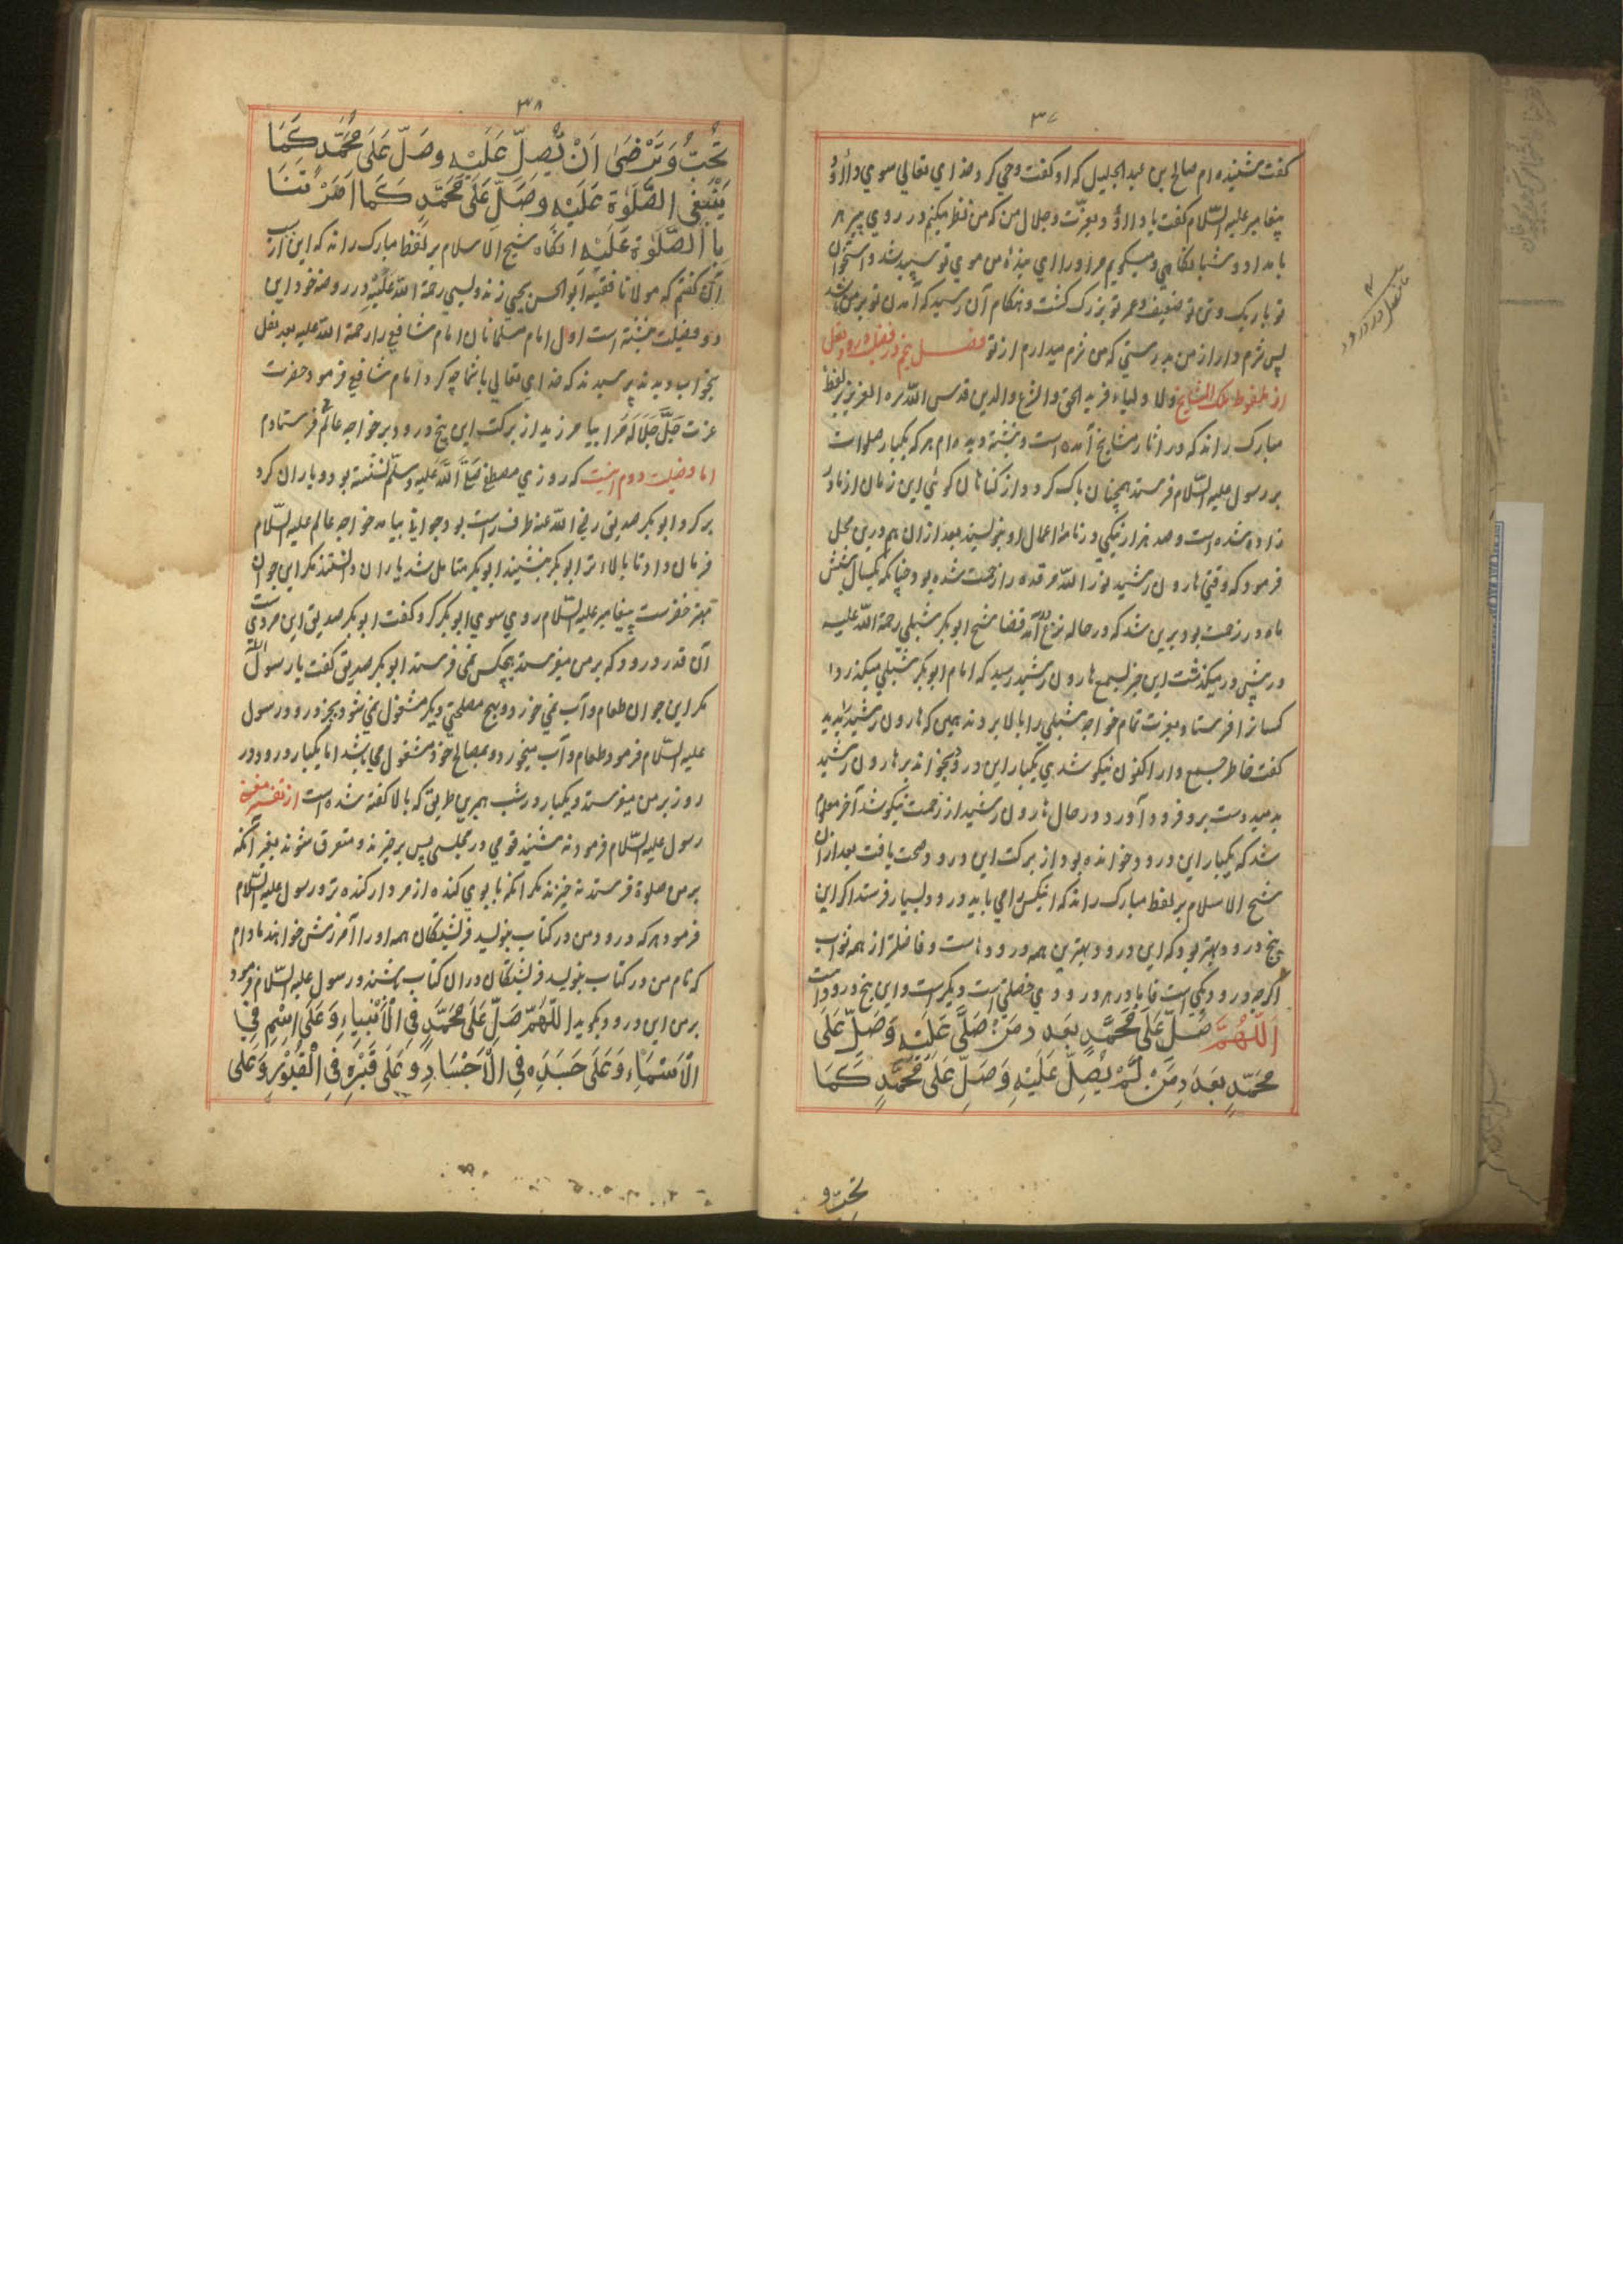 ۳۷
گفت شنیده ام صالح بن عبد الجلیل که او گفت وحی کرد خدای تعالی سوی داؤد
پیغامبر علیه السّلام گفت یا داؤد و بعزّت و جلال من که من نظر میکنم در روی پیر هر
بامداد و شبانگاهی و میگویم مر او را ای بندۀ من موی تو سپید شد و استخوان
تو باریک و تن تو ضعیف و عمر تو بزرگ گشت و هنگام آن رسید که آمدن تو بر من باشد
پس شرم دار از من بدرستی که من شرم میدارم از تو فصل پنجم در فضیلت درود نقل
از ملفوظ ملک المشایخ والاولیاء فرید الحق والشرع والدین قدس اللّه سره العزیز بر لفظ
مبارک راند که در آثار مشایخ آمده است و نبشته دیده ام هر که یکبار صلوات
بر رسول علیه السّلام فرستد همچنان پاک گردد از گناهان گوئی این زمان از مادر
زاده شده است و صد هزار نیکی در نامۀ اعمال او بنویسند بعد ازان هم درین محل
فرمود که وقتی هارون رشید نور اللّه مرقده را زحمت شده بود چنانکه یکسال شش
ماه در زحمت بود برین شد که در حاله نزع آمد قضا شیخ ابوبکر شبلی رحمة اللّه علیه
در پیش در میگذشت این خبر بسمع هارون رشید رسید که امام ابوبکر شبلی میگذرد
کسانرا فرستاد بعزت تمام خواجه شبلی را بالا بردند همین که هارون رشید بدید
گفت خاطر جمع دار اکنون نیکو شدی یکبار این درود بخواند بر هارون رشید
بدمید دست برو فرود آورد در حال هارون رشید از زحمت نیکو شد آخر معلوم
شد که یکبار این درود خوانده بود از برکت این درود صحت یافت بعد ازان
شیخ الاسلام بر لفظ مبارک راند که اینکس را می باید درود بسیار فرستد اگر این
پنج درود بهتر بود که این درود بهترین همه درودهاست و فاضلتر از همه ثواب
اگرچه درود یکی است فاما در هر درودی فضلی است دیگر است و این پنج درود است
اَللّٰهُمَّ صَلِّ عَلَی مُحَمَّدٍ بِعَدَدِ مَنْ صَلَّی عَلَیْهِ وَصَلِّ عَلَی
مُحَمَّدٍ بِعَدَدِ مَنْ لَمْ یُصِلِّ عَلَیْهِ وَصَلِّ عَلَی مُحَمَّدٍ کَمَا
تحبّ و
۳۸
تُحِبُّ وَتَرْضَی اَنْ یُّصِلِّ عَلَیْهِ وصَلِّ عَلَی مُحَمَّدٍ کَمَا
یَنْبَغِی الصَّلٰوة عَلَیْهِ وصَلِّ عَلَی مُحَمَّدٍ کَمَا اَمَرْتَنَا
بِاالصَّلٰوة عَلَیْهِ انگاه شیخ الاسلام بر لفظ مبارک راند که این از
آن گفتم که مولانا فقیه ابو الحسن یحیی زندولیسی رحمة اللّه علَیْهِ در روضه خود این
دو فضیلت نبشته است اول امام مسلمانان امام شافعی را رحمة اللّه علیه بعد نقل
بخواب دیدند پرسیدند که خدای تعالی با شما چه کرد امام شافعی فرمود حضرت
عزت جَلَّ جَلَالَه مَرا بیامرزید از برکت این پنج درود بر خواجه عالم فرستادم
اما فضیلت دوم اینست که روزی مصطفی صَلَّی اللّهُ علیه وسلّم نشسته بود و یاران گرد
بر گرد ابوبکر صدیق رضی اللّه عنه طرف راست بود جوانی بیامد خواجه عالم علیه السّلام
فرمان داد تا بالاء تر ابوبکر بنشیند ابوبکر متامل شد یاران دانستند مگر این جوان
مهتر خضرست پیغامبر علیه السّلام روی سوی ابوبکر کرد گفت ابوبکر صدیق این مردیست
آن قدر درود که بر من میفرستد هیچکس نمی فرستد ابوبکر صدیق گفت یا رسول اللّه
مگر این جوان طعام و آب نمی خورد و بهیچ مصلحتی دیگر مشغول نمی شود بجز درود رسول
علیه السّلام فرمود طعام و آب میخورد و بمصالح خود مشغول می باشد اما یکبار درود در
روز بر من میفرستد و یکبار در شب همبرین طریق که بالا گفته شده است از تفسیر مغنی
رسول علیه السّلام فرمود نه نشینند قومی در مجلسی پس برخیزند و متفرق شوند بغیر آنکه
بر من صلوة فرستد نه خیزند مگر آنکه بابوی گنده از مردار گنده تر و رسول علیه السّلام
فرمود هر که درود من در کتاب بنویسد فرشتگان همه او را آمرزش خواهند مادام
که نام من در کتاب بنویسد فرشتگان در ان کتاب باشند و رسول علیه السّلام فرمود
بر من این درود بگوید اللّٰهُمَّ صَلِّ عَلَی مُحَمَّدٍ فِی الْاَنْبِیَاءِ وَعَلَی اِسْمِه فِی
الْاَسْمَاءِ وَعَلَی جَسَدِه فِی الْاَجْسَادِ وعَلَی قَبْرِه فِی الْقُبُوْرِ وَعَلی